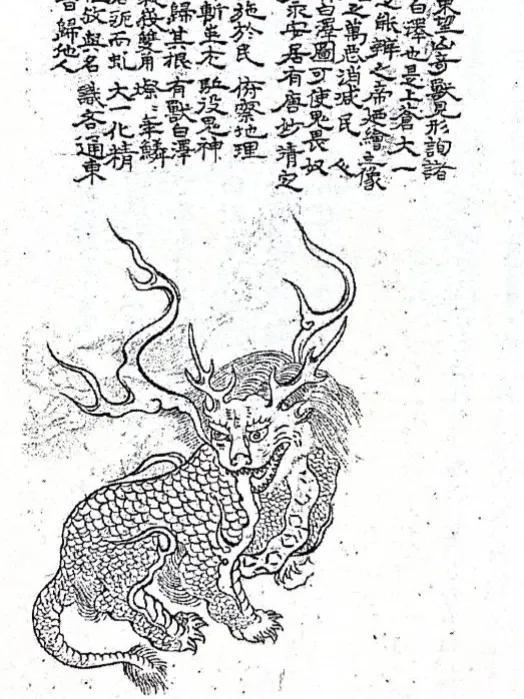 東望山奇獸見形詢諸
白澤也是上蒼大一
之能辨之帝廼繪之像
之萬惡消滅民
白澤圖可使鬼畏奴
永安居有唐妙靖定
施於民 俯察地理
斬坐 役鬼神
歸其根 有獸白澤
雙角 燦:華鱗
泥而虬 大一化精
與名 識各通東
歸地人